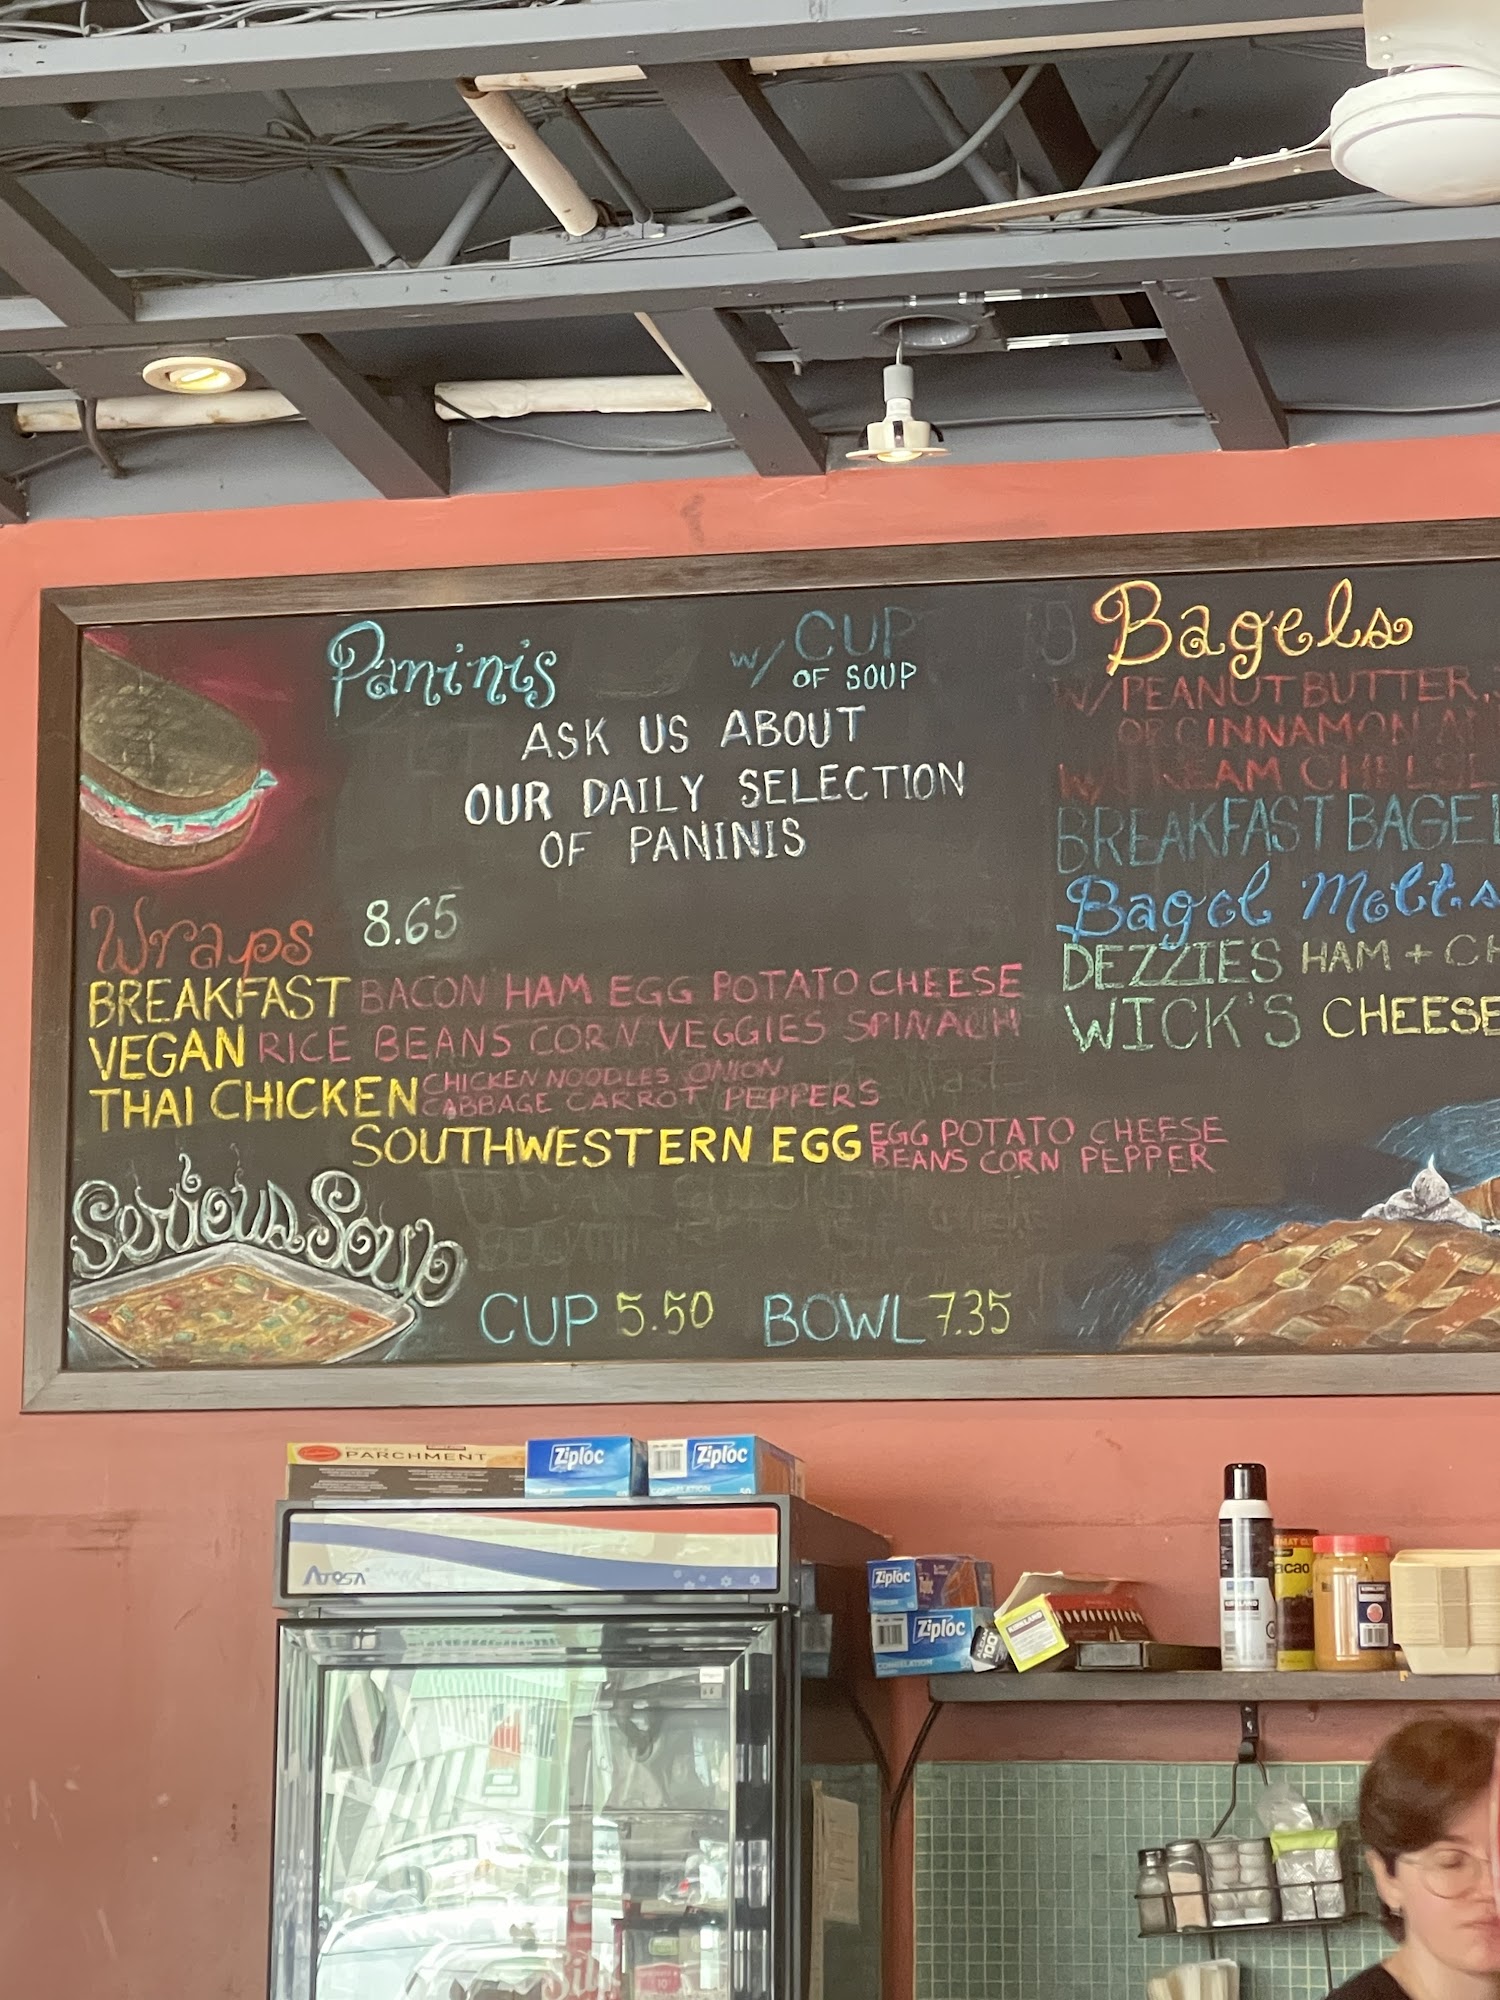 Paninis
w/ CUP
OF SOUP
ASK US ABOUT
OUR DAILY SELECTION
OF PANINIS
Wraps 8.65
BREAKFAST BACON HAM EGG POTATO CHEESE
VEGAN RICE BEANS CORN VEGGIES SPINACH
THAI CHICKEN CHICKEN NOODLES ONION
CABBAGE CARROT PEPPERS
SOUTHWESTERN EGG EGG POTATO CHEESE
BEANS CORN PEPPER
Serious Soup
CUP 5.50 BOWL 7.35
Bagels
W/ PEANUT BUTTER
OR CINNAMON
W/ CREAM CHEESE
BREAKFAST BAGEL
Bagel Melts
DEZZIES HAM +
WICK'S CHEESE
PARCHMENT
Ziploc
Ziploc
CONGELATION 50
ATOSA
Ziploc
Ziploc
CONGELATION
KIRKLAND
100
KIRKLAND
KIRKLAND